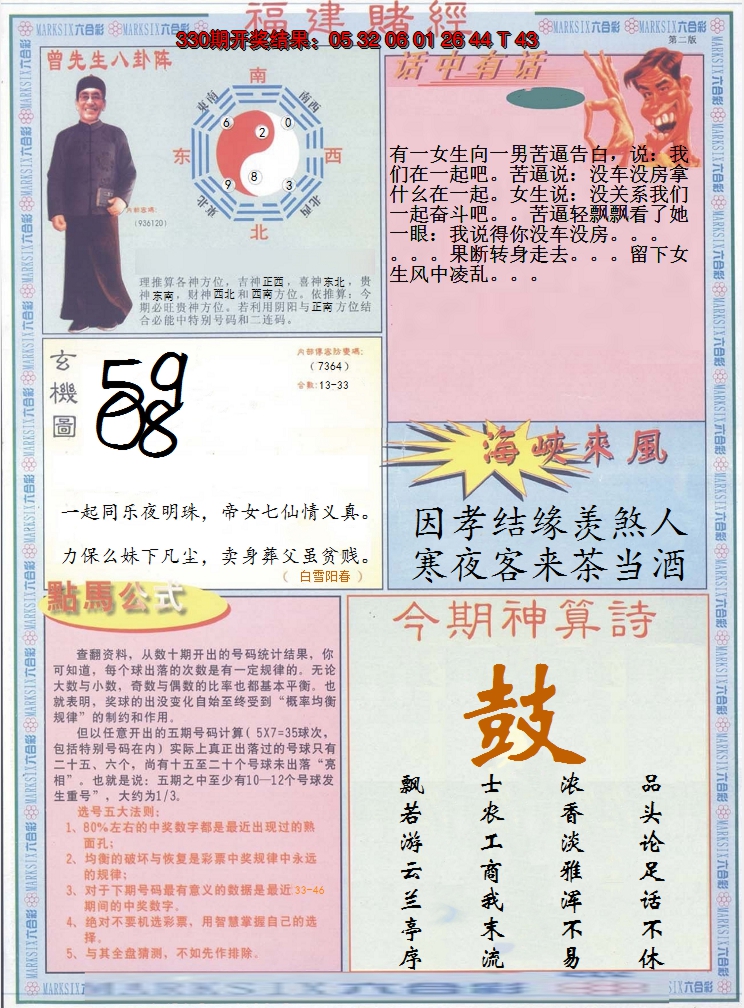 福建賭經
330期开奖结果：05 32 06 01 26 44 T 43
第二版
MARKSIX六合彩
曾先生八卦阵
南
东南
南西
6
2
0
东
西
9
8
3
东北
北西
北
内部密碼:
（936120）
理推算各神方位，吉神正西，喜神东北，贵
神东南，财神西北和西南方位。依推算：今
期必旺贵神方位。若利用阴阳与正南方位结
合必能中特别号码和二连码。
话中有话
有一女生向一男苦逼告白，说：我
们在一起吧。苦逼说：没车没房拿
什么在一起。女生说：没关系我们
一起奋斗吧。。苦逼轻飘飘看了她
一眼：我说得你没车没房。。。
。。。果断转身走去。。。留下女
生风中凌乱。。。
玄機圖
59
08
内部傳密防燮碼:
（7364）
合数:13-33
一起同乐夜明珠，帝女七仙情义真。
力保么妹下凡尘，卖身葬父虽贫贱。
（ 白雪阳春 ）
海峽來風
因孝结缘羡煞人
寒夜客来茶当酒
點馬公式
查翻资料，从数十期开出的号码统计结果，你
可知道，每个球出落的次数是有一定规律的。无论
大数与小数，奇数与偶数的比率也都基本平衡。也
就表明，奖球的出没变化自始至终受到“概率均衡
规律”的制约和作用。
但以任意开出的五期号码计算( 5X7=35球次，
包括特别号码在内）实际上真正出落过的号球只有
二十五、六个，尚有十五至二十个号球未出落“亮
相”。也就是说：五期之中至少有10—12个号球发
生重号”，大约为1/3。
选号五大法则：
1、80%左右的中奖数字都是最近出现过的熟
面孔；
2、均衡的破坏与恢复是彩票中奖规律中永远
的规律；
3、对于下期号码最有意义的数据是最近33-46
期间的中奖数字。
4、绝对不要机选彩票，用智慧掌握自己的选
择。
5、与其全盘猜测，不如先作排除。
今期神算詩
鼓
品头论足话不休
浓香淡雅浑不易
士农工商我末流
飘若游云兰亭序